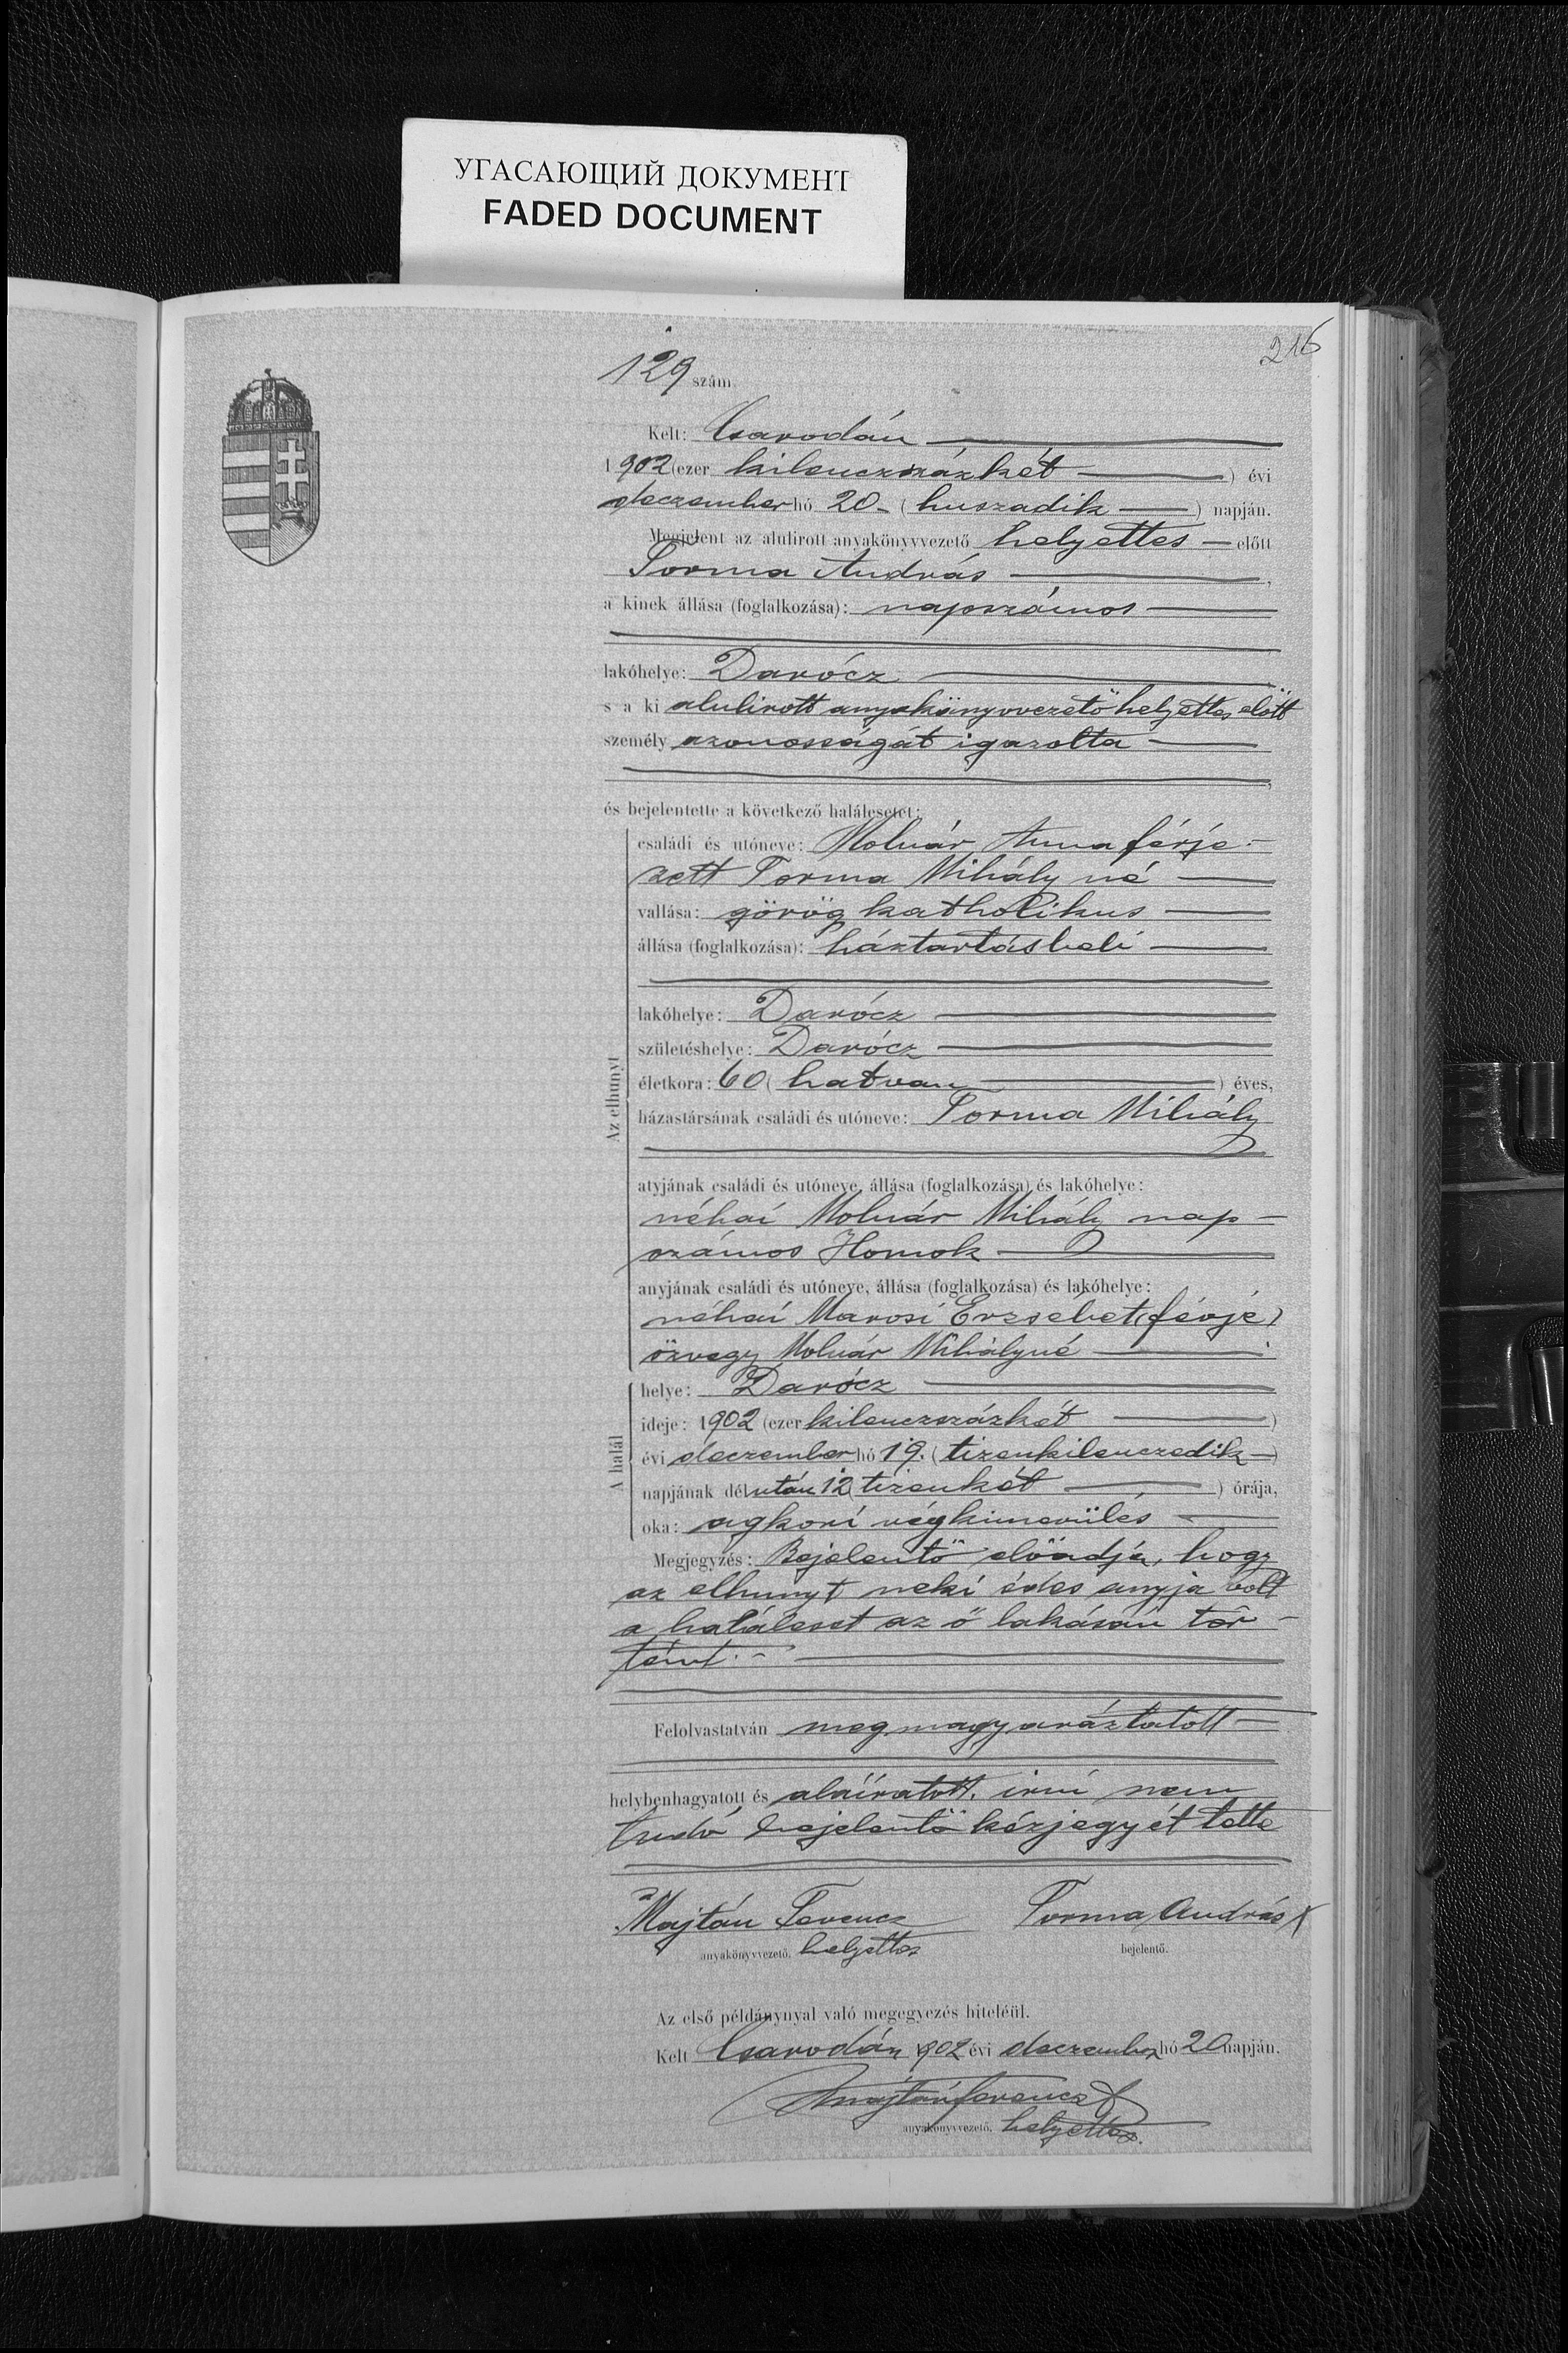 УГАСАЮЩИЙ ДОКУМЕНТ
FADED DOCUMENT
216
129 szám.
Kelt: Csarodán
1902 (ezer kilenczszázkét) évi
deczember hó 20- (huszadik) napján.
Megjelent az alulirott anyakönyvvezető helyettes előtt
Torma András,
a kinek állása (foglalkozása): napszámos
lakóhelye: Darócz
s a ki alulirott anyakönyvvezető helyettes előtt
személy azonosságát igazolta
és bejelentette a következő halálesetet:
Az elhunyt
családi és utóneve: Molnár Anna férje-
zett Torma Mihály né
vallása: görög katholikus
állása (foglalkozása): háztartásbeli
lakóhelye: Darócz
születéshelye: Darócz
életkora: 60 (hatvan) éves,
házastársának családi és utóneve: Torma Mihály
atyjának családi és utóneve, állása (foglalkozása) és lakóhelye:
néhai Molnár Mihály nap-
számos Homok
anyjának családi és utóneve, állása (foglalkozása) és lakóhelye:
néhai Marosi Erzsébet (férje)
özvegy Molnár Mihályné
A halál
helye: Darócz
ideje: 1902 (ezer kilenczszázkét)
évi deczember hó 19. (tizenkilenczedik)
napjának délután 12 (tizenkét) órája,
oka: agkori végkimerülés
Megjegyzés: Bejelentő előadja, hogy
az elhunyt neki édes anyja volt
a haláleset az ő lakásán tör-
tént.-
Felolvastatván megmagyaráztatott
helybenhagyatott és aláiratott. irni nem
tudó bejelentő kézjegyét tette
Majtán Ferencz Torma András X
anyakönyvvezető. helyettes bejelentő.
Az első példánynyal való megegyezés hiteléül.
Kelt Csarodán 1902 évi deczember hó 20 napján.
Majtán Ferencz
anyakönyvvezető. helyettes.